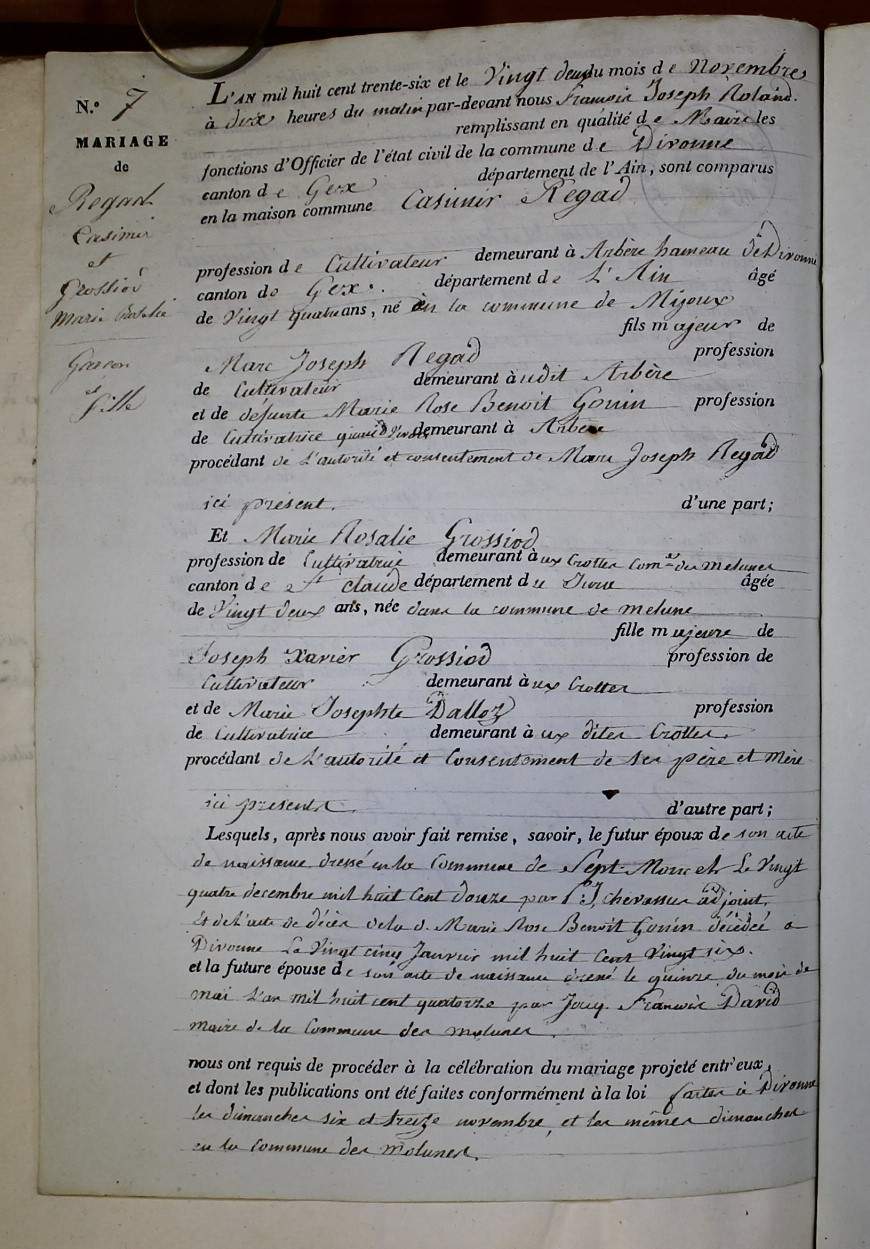 N.° 7
MARIAGE
de
Regad
Casimir
et
Grossiod
Marie Rosalie
Garcon
et
fille
L'AN mil huit cent trente-six et le Vingt deux du mois de Novembre
à dix heures du matin par-devant nous François Joseph Roland.
remplissant en qualité de Maire les
fonctions d'Officier de l'état civil de la commune de Divonne
canton de Gex département de l'Ain, sont comparus
en la maison commune Casimir Regad
profession de Cultivateur demeurant à Arbère hameau de Divonne
canton de Gex. département de L'Ain âgé
de Vingt quatre ans, né en la commune de Mijoux
fils majeur de
Marc Joseph Regad profession
de Cultivateur demeurant audit Arbère
et de défunte Marie Rose Benoit Gonin profession
de Cultivatrice quand vivait demeurant à Arbère
procédant de L'autorité et consentement de Marc Joseph Regad
ici présent. d'une part;
Et Marie Rosalie Grossiod
profession de Cultivatrice demeurant aux Crottes com.ne des molunes
canton de St claude département du Jura âgée
de Vingt deux ans, née dans la commune de molune
fille majeure de
Joseph Xavier Grossiod profession de
Cultivateur demeurant aux Crottes
et de Marie Josephte Dalloz profession
de Cultivatrice demeurant aux dites Crottes.
procédant de L'autorité et Consentement de ses père et mère
ici presents. d'autre part;
Lesquels, après nous avoir fait remise, savoir, le futur époux de son acte
de naissance dressé en la Commune de Sept Moncels Le Vingt
quatre decembre mil huit Cent douze par P. J. Chevassus adjoint,
Et de L'acte de décès de la d. Marie Rose Benoit Gonin décédée a
Divonne Le Vingt cinq Janvier mil huit Cent Vingt six.
et la future épouse de son acte de naissance dressé le quinze du mois de
mai L'an mil huit cent quatorze par Jacq. François David
maire de la Commune des molunes.
nous ont requis de procéder à la célébration du mariage projeté entr'eux,
et dont les publications ont été faites conformément à la loi faites à Divonne
les dimanches six et treize novembre, et les mêmes dimanches
en la Commune des Molunes.